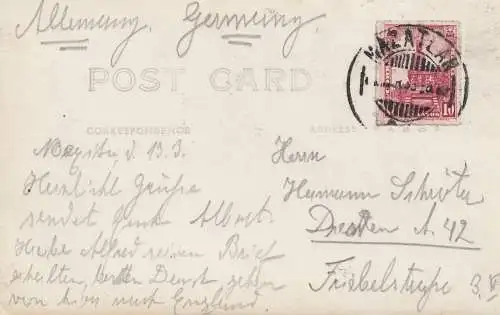 Allemagny, Germany,
MAZATLAN
10
POST CARD
CORRESPONDENCE
ADDRESS
d. 13.3.
Herzliche Grüsse
sendet Euch Albert.
Habe Alfred seinen Brief
erhalten, besten Dank, gehen
von hier nach England.
Herrn
Hermann Schröter
Dresden A. 42
Friebelstraße 3.